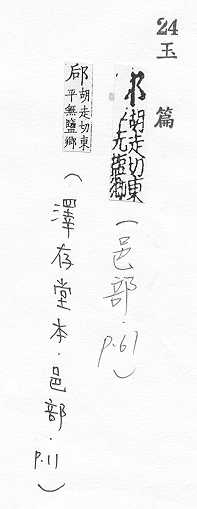 24
玉篇
胡走切東
(邑部．p.61)
郈 胡走切東
平無鹽鄉
(澤存堂本．邑部．p.11)